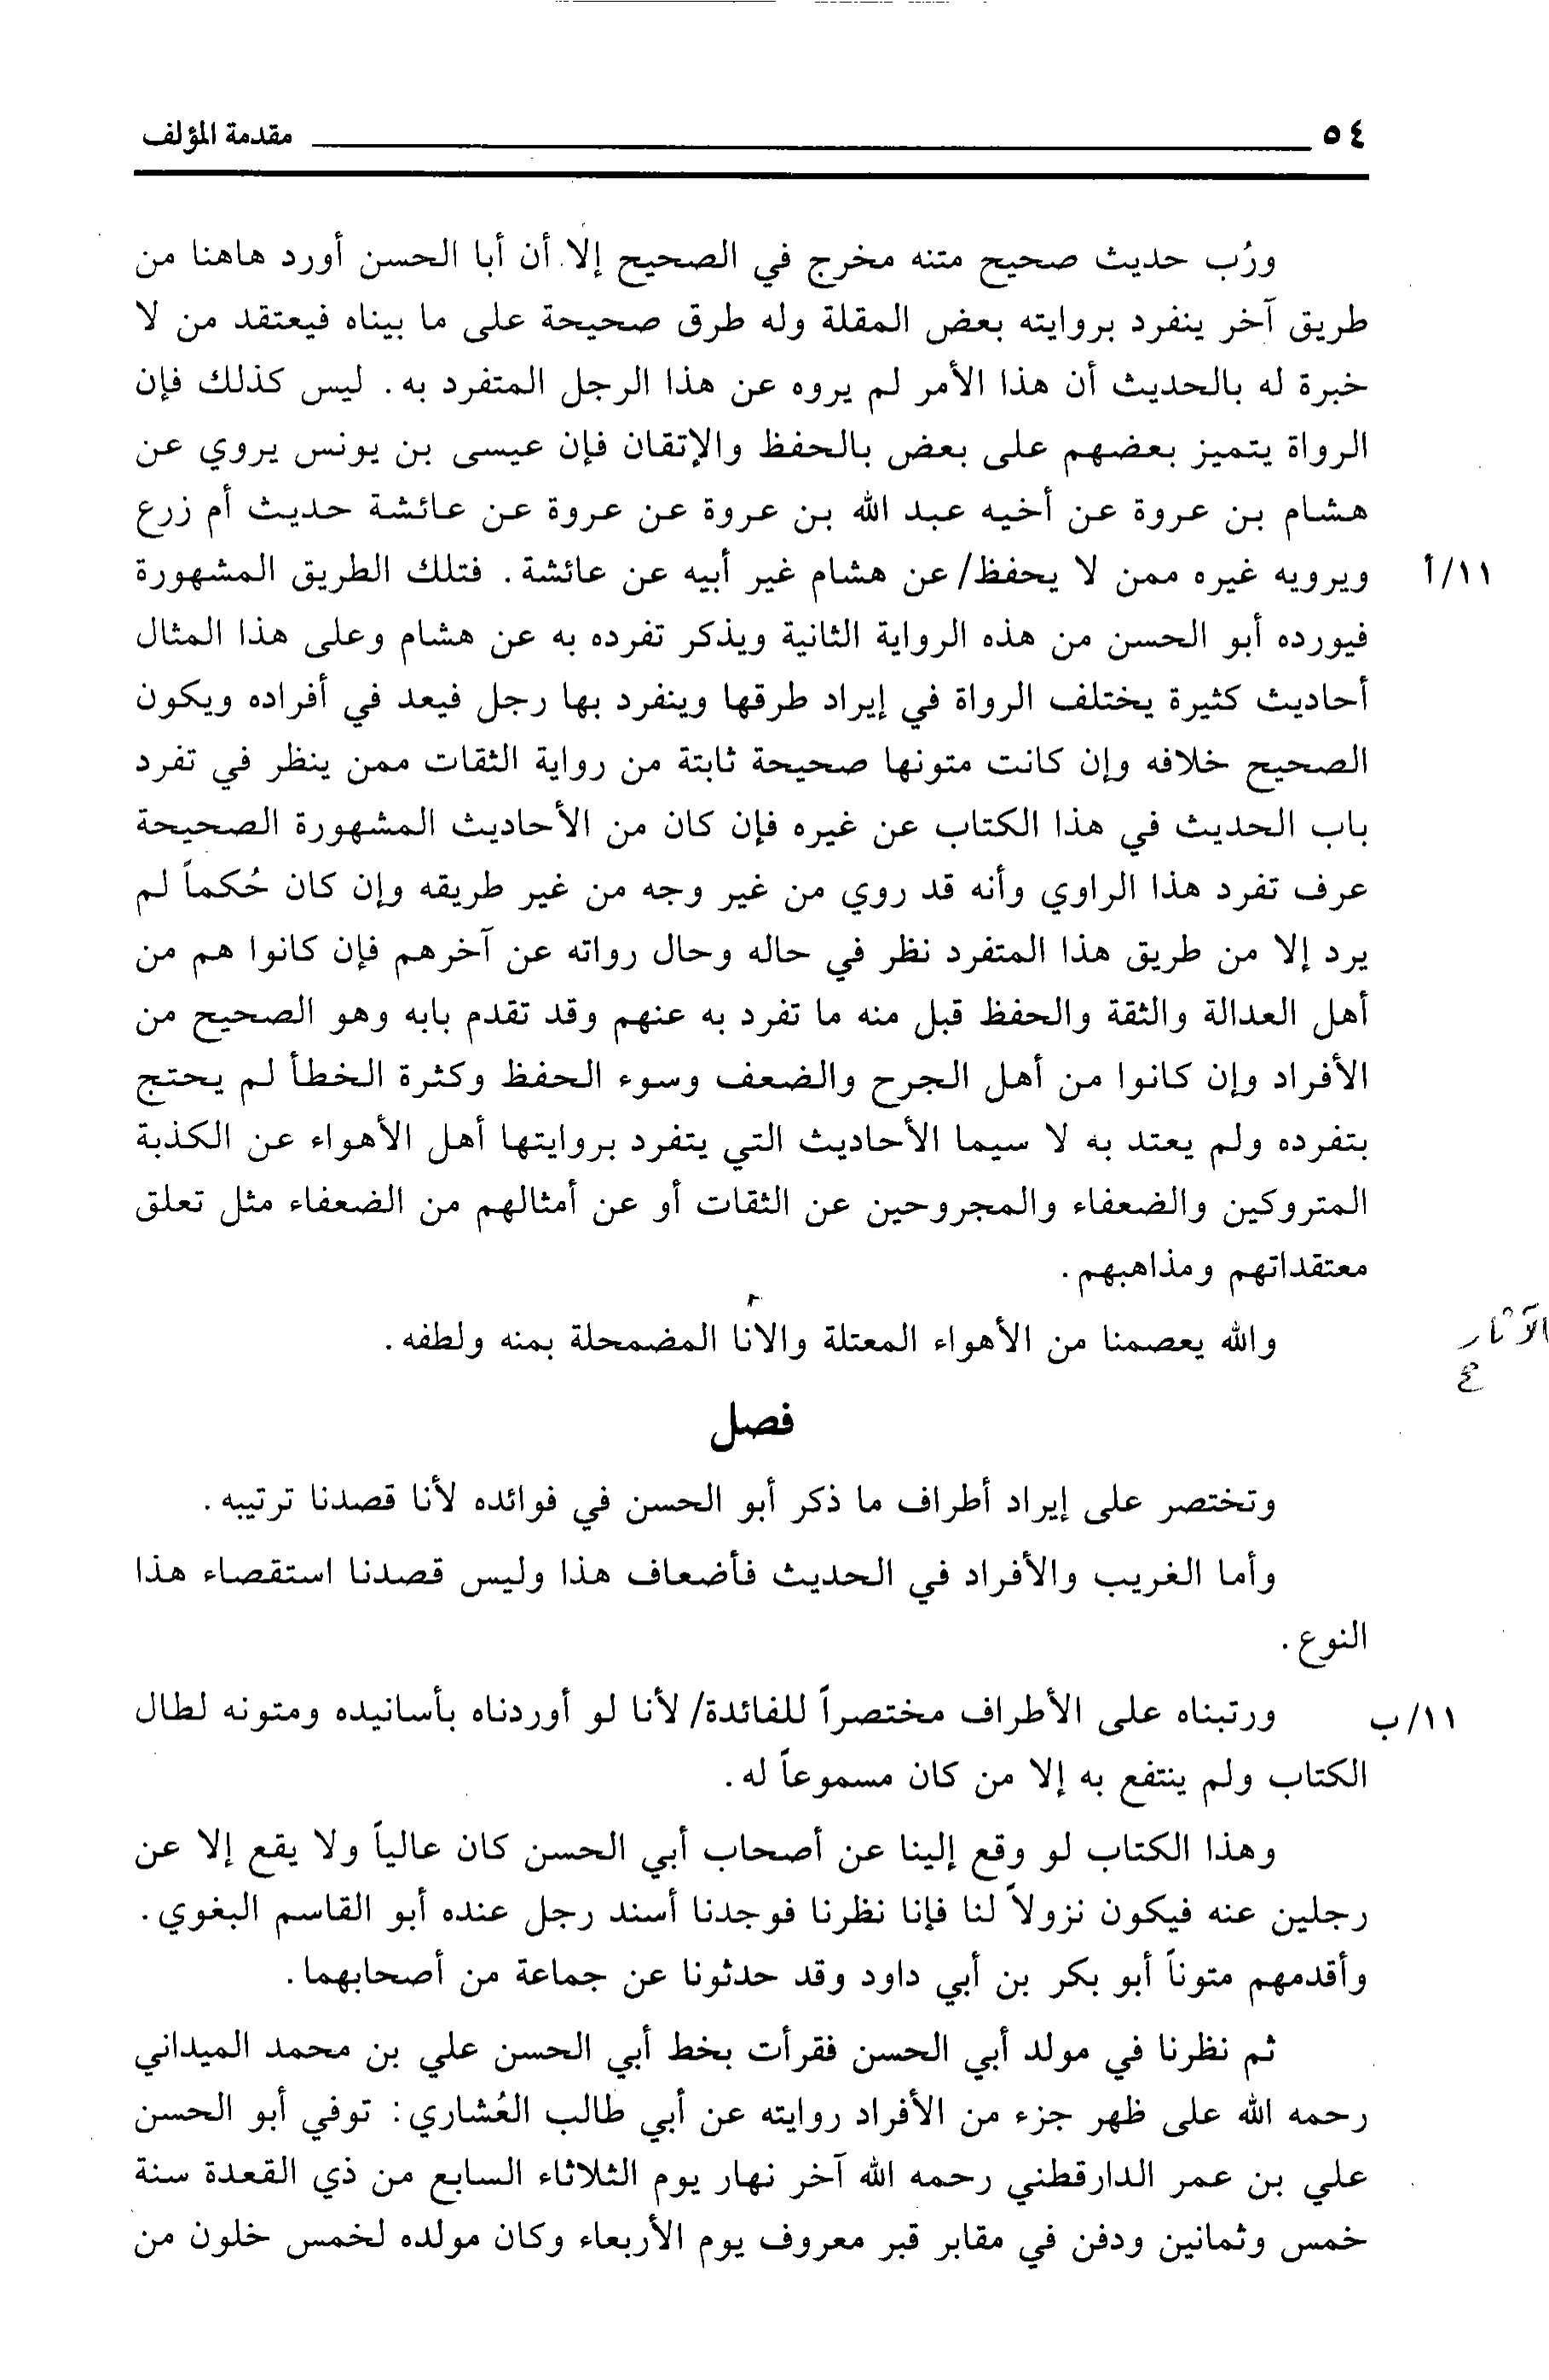 ٥٤ مقدمة المؤلف
ورُب حديث صحيح متنه مخرج في الصحيح إلا أن أبا الحسن أورد هاهنا من
طريق آخر ينفرد بروايته بعض المقلة وله طرق صحيحة على ما بيناه فيعتقد من لا
خبرة له بالحديث أن هذا الأمر لم يروه عن هذا الرجل المتفرد به. ليس كذلك فإن
الرواة يتميز بعضهم على بعض بالحفظ والإتقان فإن عيسى بن يونس يروي عن
هشام بن عروة عن أخيه عبد الله بن عروة عن عروة عن عائشة حديث أم زرع
ويرويه غيره ممن لا يحفظ/ عن هشام غير أبيه عن عائشة. فتلك الطريق المشهورة
١١/أ
فيورده أبو الحسن من هذه الرواية الثانية ويذكر تفرده به عن هشام وعلى هذا المثال
أحاديث كثيرة يختلف الرواة في إيراد طرقها وينفرد بها رجل فيعد في أفراده ويكون
الصحيح خلافه وإن كانت متونها صحيحة ثابتة من رواية الثقات ممن ينظر في تفرد
باب الحديث في هذا الكتاب عن غيره فإن كان من الأحاديث المشهورة الصحيحة
عرف تفرد هذا الراوي وأنه قد روي من غير وجه من غير طريقه وإن كان حُكماً لم
يرد إلا من طريق هذا المتفرد نظر في حاله وحال رواته عن آخرهم فإن كانوا هم من
أهل العدالة والثقة والحفظ قبل منه ما تفرد به عنهم وقد تقدم بابه وهو الصحيح من
الأفراد وإن كانوا من أهل الجرح والضعف وسوء الحفظ وكثرة الخطأ لم يحتج
بتفرده ولم يعتد به لا سيما الأحاديث التي يتفرد بروايتها أهل الأهواء عن الكذبة
المتروكين والضعفاء والمجروحين عن الثقات أو عن أمثالهم من الضعفاء مثل تعلق
معتقداتهم ومذاهبهم.
والله يعصمنا من الأهواء المعتلة والانا المضمحلة بمنه ولطفه.
الآثار
فصل
وتختصر على إيراد أطراف ما ذكر أبو الحسن في فوائده لأنا قصدنا ترتيبه.
وأما الغريب والأفراد في الحديث فأضعاف هذا وليس قصدنا استقصاء هذا
النوع.
ورتبناه على الأطراف مختصراً للفائدة/ لأنا لو أوردناه بأسانيده ومتونه لطال
١١/ب
الكتاب ولم ينتفع به إلا من كان مسموعاً له.
وهذا الكتاب لو وقع إلينا عن أصحاب أبي الحسن كان عالياً ولا يقع إلا عن
رجلين عنه فيكون نزولاً لنا فإنا نظرنا فوجدنا أسند رجل عنده أبو القاسم البغوي.
وأقدمهم متوناً أبو بكر بن أبي داود وقد حدثونا عن جماعة من أصحابهما.
ثم نظرنا في مولد أبي الحسن فقرأت بخط أبي الحسن علي بن محمد الميداني
رحمه الله على ظهر جزء من الأفراد روايته عن أبي طالب العُشاري: توفي أبو الحسن
علي بن عمر الدارقطني رحمه الله آخر نهار يوم الثلاثاء السابع من ذي القعدة سنة
خمس وثمانين ودفن في مقابر قبر معروف يوم الأربعاء وكان مولده لخمس خلون من